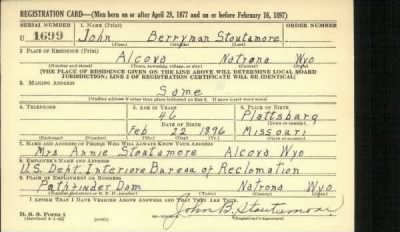 REGISTRATION CARD—(Men born on or after April 28, 1877 and on or before February 16, 1897)
SERIAL NUMBER 1. NAME (Print) ORDER NUMBER
U 1699 John Berryman Stoutamore
(First) (Middle) (Last)
2. PLACE OF RESIDENCE (Print)
Alcova Natrona Wyo
(Number and street) (Town, township, village, or city) (County) (State)
[THE PLACE OF RESIDENCE GIVEN ON THE LINE ABOVE WILL DETERMINE LOCAL BOARD
JURISDICTION; LINE 2 OF REGISTRATION CERTIFICATE WILL BE IDENTICAL]
3. MAILING ADDRESS
Same
[Mailing address if other than place indicated on line 2. If same insert word same]
4. TELEPHONE 5. AGE IN YEARS 6. PLACE OF BIRTH
46 Plattsburg
DATE OF BIRTH
Feb 22 1896 Missouri
(Exchange) (Number) (Mo.) (Day) (Yr.) (State or country)
7. NAME AND ADDRESS OF PERSON WHO WILL ALWAYS KNOW YOUR ADDRESS
Mrs Annie Stoutamore Alcova Wyo
8. EMPLOYER'S NAME AND ADDRESS
U.S. Dept. Interiore Bureau of Reclomation
9. PLACE OF EMPLOYMENT OR BUSINESS
Pathfinder Dam Natrona Wyo.
(Number and street or R. F. D. number) (Town) (County) (State)
I AFFIRM THAT I HAVE VERIFIED ABOVE ANSWERS AND THAT THEY ARE TRUE.
D. S. S. Form 1
John B. Stoutamore
(Registrant's signature)